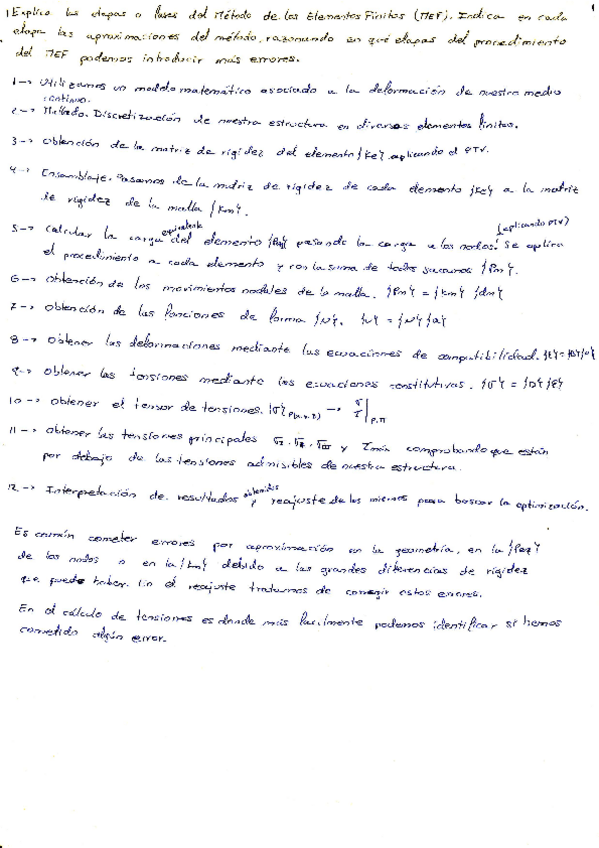 1 Explica las etapas o fases del Método de los Elementos Finitos (MEF). Indica en cada
etapa las aproximaciones del método, razonando en qué etapas del procedimiento
del MEF podemos introducir más errores.
1 → Utilizamos un modelo matemático asociado a la deformación de nuestro medio
continuo.
2 → Método. Discretización de nuestra estructura en diversos elementos finitos.
3 → Obtención de la matriz de rigidez del elemento {Ke} aplicando el PTV.
4 → Ensamblaje. Pasamos de la matriz de rigidez de cada elemento {Ke} a la matriz
de rigidez de la malla {Km}.
5 → Calcular la carga equivalente del elemento {Peq} pasando la carga a los nodos. (aplicando PTV) Se aplica
el procedimiento a cada elemento y con la suma de todos sacamos {Pm}.
6 → Obtención de los movimientos nodales de la malla. {Pm} = {Km} {dm}
7 → Obtención de las funciones de forma {N}. {u} = {N} {a}
8 → Obtener las deformaciones mediante las ecuaciones de compatibilidad.
9 → Obtener las tensiones mediante las ecuaciones constitutivas. {σ} = {D} {ε}
10 → Obtener el tensor de tensiones. {σ} P(x,y,z) → σ τ | P,π
11 → Obtener las tensiones principales σI, σII, σIII y τmáx comprobando que están
por debajo de las tensiones admisibles de nuestra estructura.
12 → Interpretación de resultados obtenidos y reajuste de los mismos para buscar la optimización.
Es común cometer errores por aproximación en la geometría, en la {Peq}
de los nodos o en la {Km} debido a las grandes diferencias de rigidez
que puede haber. En el reajuste tratamos de corregir estos errores.
En el cálculo de tensiones es donde más fácilmente podemos identificar si hemos
cometido algún error.